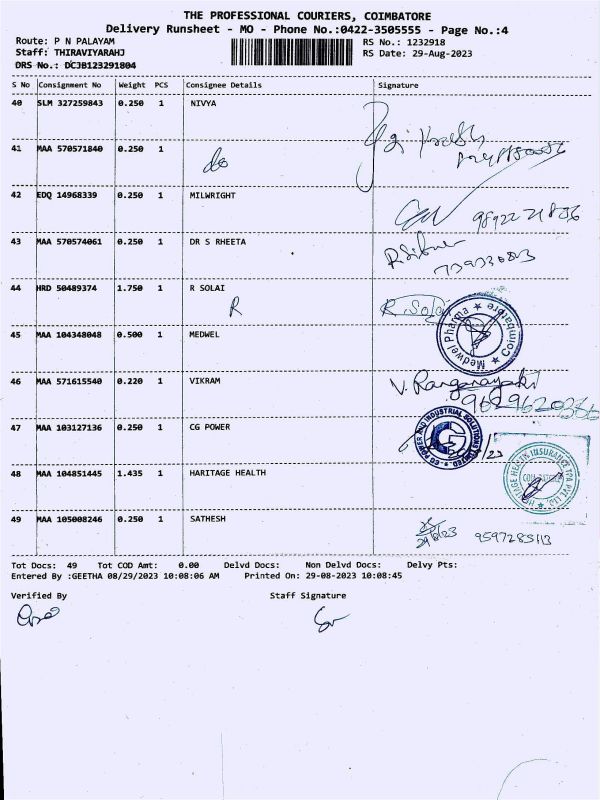 THE PROFESSIONAL COURIERS, COIMBATORE
Delivery Runsheet - MO - Phone No.:0422-3505555 - Page No.:4
Route: P N PALAYAM
RS No.: 1232918
Staff: THIRAVIYARAHJ
RS Date: 29-Aug-2023
DRS No.: DCJB123291804
S No Consignment No Weight PCS Consignee Details Signature
40 SLM 327259843 0.250 1 NIVYA
41 MAA 570571840 0.250 1
do
42 EDQ 14968339 0.250 1 MILWRIGHT
43 MAA 570574061 0.250 1 DR S RHEETA
44 HRD 50489374 1.750 1 R SOLAI
R R Solai
45 MAA 104348048 0.500 1 MEDWEL
Medwel Pharma ★ Coimbatore ★
46 MAA 571615540 0.220 1 VIKRAM
V. Ranganayaki
47 MAA 103127136 0.250 1 CG POWER
CG POWER AND INDUSTRIAL SOLUTIONS LIMITED
48 MAA 104851445 1.435 1 HARITAGE HEALTH
HERITAGE HEALTH INSURANCE TPA PVT. LTD.
49 MAA 105008246 0.250 1 SATHESH
9597285113
Tot Docs: 49 Tot COD Amt: 0.00 Delvd Docs: Non Delvd Docs: Delvy Pts:
Entered By :GEETHA 08/29/2023 10:08:06 AM Printed On: 29-08-2023 10:08:45
Verified By Staff Signature